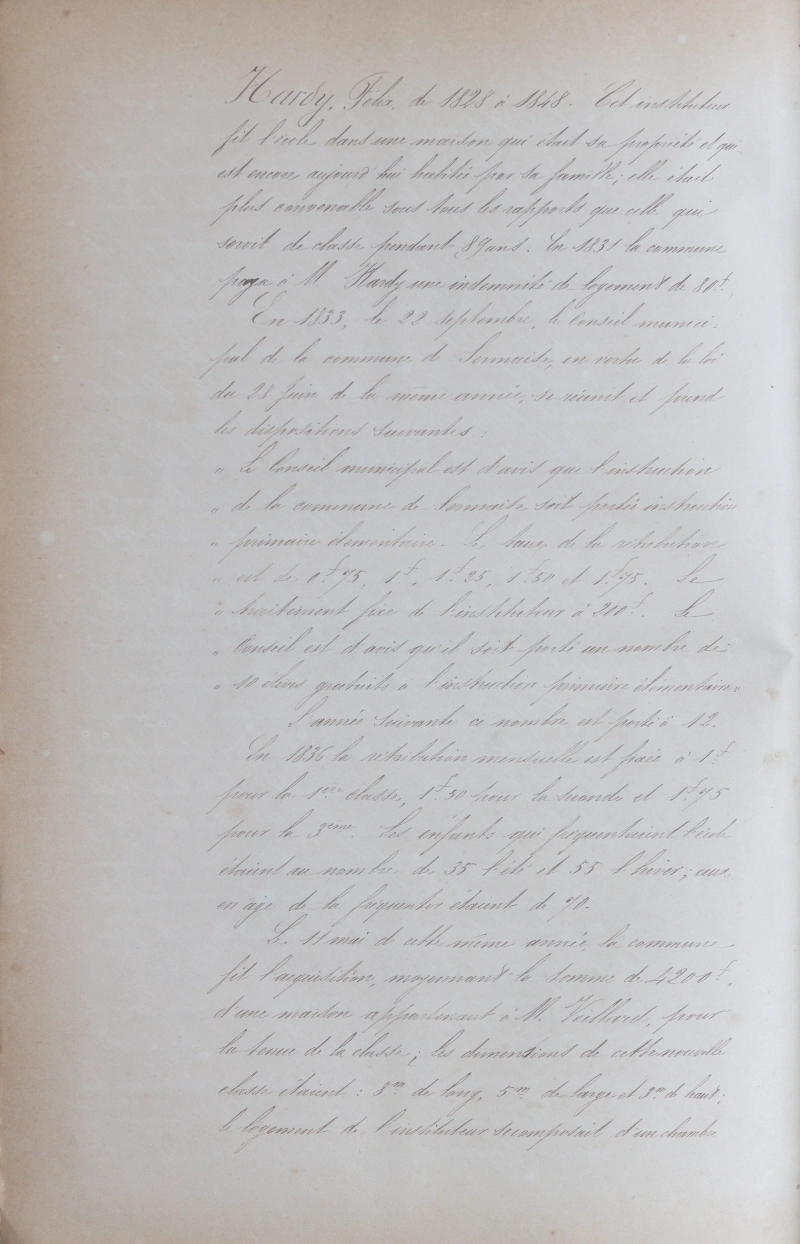 Hardy, Félix, de 1828 à 1848. Cet instituteur
fit l'école dans une maison qui était sa propriété et qui
est encore aujourd'hui habitée par sa famille; elle était
plus convenable sous tous les rapports que celle qui
servit de classe pendant 89 ans. En 1831 la commune
paya à M. Hardy une indemnité de logement de 80f.
En 1833, le 22 septembre, le Conseil munici-
pal de la commune de Sermaise, en vertu de la loi
du 28 Juin de la même année, se réunit et prend
les dispositions suivantes :
" Le Conseil municipal est d'avis que l'instruction
" de la commune de Sermaise soit portée instruction
" primaire élémentaire. Le taux de la rétribution
" est de 0f75, 1f, 1f25, 1f50 et 1f75. Le
" traitement fixe de l'instituteur à 200f. Le
" Conseil est d'avis qu'il soit porté un nombre de
" 10 élèves gratuits à l'instruction primaire élémentaire "
L'année suivante ce nombre est porté à 12.
En 1836 la rétribution mensuelle est fixée à 1f
pour la 1ère classe, 1f50 pour la seconde et 1f75
pour la 3ème. Les enfants qui fréquentaient l'école
étaient au nombre de 35 l'été et 55 l'hiver; ceux
en âge de la fréquenter étaient de 70.
Le 11 mai de cette même année, la commune
fit l'acquisition, moyennant la somme de 4200f,
d'une maison appartenant à M. Veillard, pour
la tenue de la classe; les dimensions de cette nouvelle
classe étaient : 8m de long, 5m de large et 3m de haut;
le logement de l'instituteur se composait d'un chambre